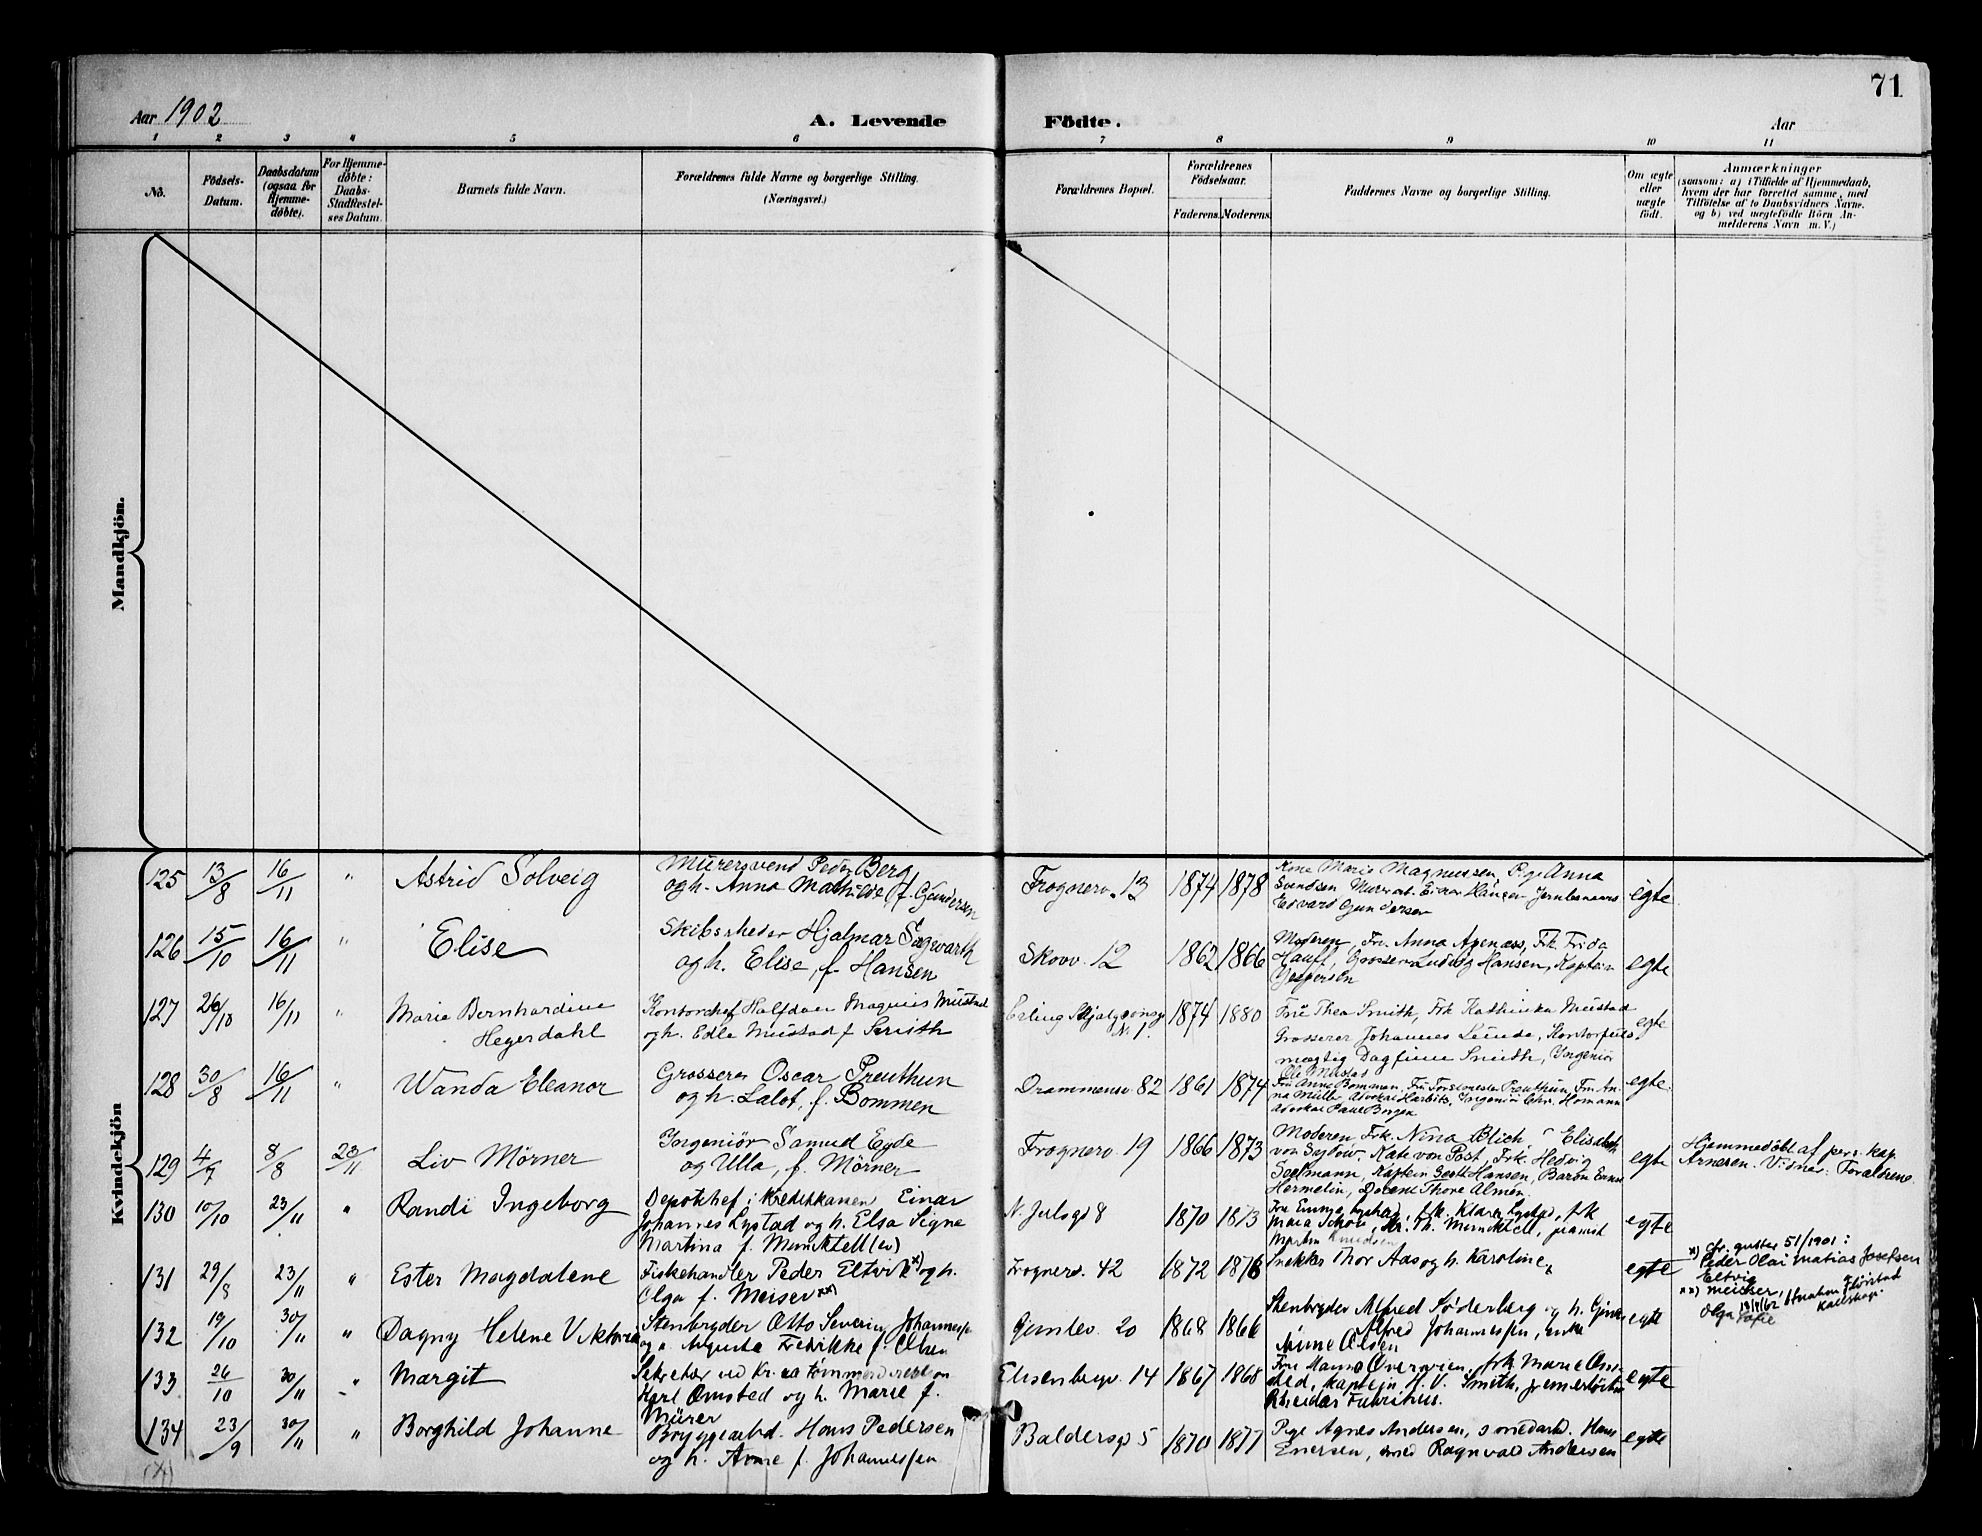 71
Aar 1902
A. Levende Födte.
Aar
1 2 3 4 5 6 7 8 9 10 11
No.
Födsels-
Datum.
Daabsdatum
(ogsaa for
Hjemme-
döbte).
For Hjemme-
döbte:
Daabs-
Stadfæstel-
ses Datum.
Barnets fulde Navn.
Forældrenes fulde Navne og borgerlige Stilling.
(Næringsvei.)
Forældrenes Bopæl.
Forældrenes
Födselsaar.
Faderens. Moderens.
Faddernes Navne og borgerlige Stilling.
Om ægte
eller
uægte
födt.
Anmærkninger
(saasom: a) i Tilfælde af Hjemmedaab,
hvem der har forrettet samme, med
Tilföielse af to Daabsvidners Navne.
og b) ved uægtefödte Börn An-
melderens Navn m. V.)
Mandkjön.
Kvindekjön
125 13/8 16/11 " Astrid Solveig
Murersvend Peder Berg
og h. Anna Mathilde f. Gundersen
Frognerv. 13 1874 1878
Kone Marie Magnussen, Pige Anna
Svendsen, Murerarb. Einar Hansen
Edvard Gundersen
egte
126 15/10 16/11 " Elise
Skibsrheder Hjalmar
og h. Elise, f. Hansen
Skovv. 12 1862 1866
Moderen, Fru Anna Agenæss, Frk Frida
Hauff, Grosserer Ludvig Hansen, Kaptein
Jespersen
egte
127 26/10 16/11 " Marie Bernhardine
Hegerdahl
Kontorchef Halfdan Magnus Mustad
og h. Edle Mustad f. Smith
Erling Skjalgsonsg
No 1. 1874 1880
Frü Thea Smith, Frk Kathinka Mustad
Grosserer Johannes Lunde, Kontorfuld
mægtig Dagfinn Smith, Ingeniör
Ole Mustad
egte
128 30/8 16/11 " Wanda Eleanor
Grosserer Oscar Preuthun
og h. Lalot, f. Bommen
Drammensv 82 1861 1874
Fru Anne Bommen, Frü Preuthun, Fru An-
na Müller, Advokat Harbitz, Ingeniör Chr. Homann
Advokat Paul Borgen
egte.
129 4/7 8/8 23/11 Liv Mörner
Ingeniör Samuel Eyde
og Ulla, f. Mörner
Frognerv 19 1866 1873
Moderen, Frk. Nina Blich, Elisabeth
von Seylow, Kate von Post, Frk. Hedvig
Kaptein Scott Hansen, Baron
Hermelin, Docent Thore Almén.
egte
Hjemmedöbt af pers. kap.
Arnesen. Vidner: Forældrene.
130 10/10 23/11 " Randi Ingeborg
Depotchef i Kreditkassen Einar
Johannes Lystad og h. Elsa Signe
Martina f. Muncktell (ev)
N. Juelsgd 8 1870 1873
Fru Emma Lystad, frk. Klara Lystad, frk
Maria Schöle, Hr. Th. Muncktell, pianist
Martin Knudsen
egte
131 29/8 23/11 " Ester Magdalene
Fiskehandler Peder Eltvik x) og h.
Olga f. Meiser xx)
Frognerv. 42 1872 1876
Snekker Thor Aas og h. Karoline
egte
x) cfr. 51/1901:
Peder Olai Matias Josefsen
Eltvig
xx) Meicher,
Olga Sofie
132 19/10 30/11 " Dagny Helene Viktoria
Stenbryder Otto Severin Johannesen
og h. Augusta Fredrikke f. Olsen
Gimlev. 20 1868 1866
Stenbryder Alfred Söderberg og h. Gina
Alfred Johannessen, enke
Anne Olsen
egte
133 26/10 30/11 " Margit
Sekretær ved Kr.ia tömmerdirektion
Karl Omsted og h. Marie f.
Mürer
Elisenbergv. 14 1867 1868
Fru Hanna Qvervien, frk Marie Om-
sted, kaptein H. V. Smith, premierlöitn.
Kheidar Fabritius.
egte
134 23/9 30/11 " Borghild Johanne
Bryggearbd. Hans Pedersen
og h. Anne f. Johannessen
Baldersgd 5 1870 1877
Pige Agnes Andersen, smedarb. Hans
Enersen, smed Ragnvald Andersen
egte